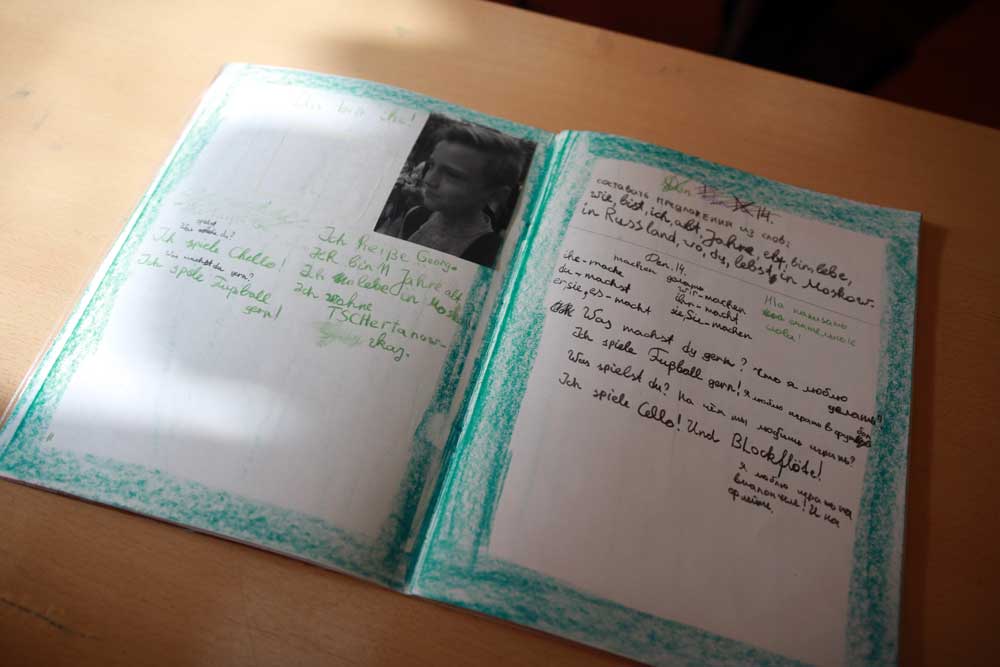 bin
Was spielst du?
Ich spiele Chello!
Was machst du gern?
Ich spiele Fußball
gern!
Ich heiße Georg.
Ich bin 11 Jahre alt
Ich lebe in Moskau
Ich wohne
TSCHertanow-
skaj.
Den 14.
составать предложения из слов:
wie, bist, ich, alt, Jahre, elf, bin, lebe,
in Russland, wo, du, lebst, in Moskow.
Den. 14.
machen делать
ihe-mache wir-machen
du-machst ihn-macht
er sie, es-macht sie, Sie-machen
На написано
слови!
Was machst du gern? Что я люблю
делать?
Ich spiele Fußball gern! Я люблю играть в футбол
Was spielst du? На чём ты любишь играть?
Ich spiele Cello! Und Blockflöte!
Я люблю играть на
виолончел! И на
флейте.